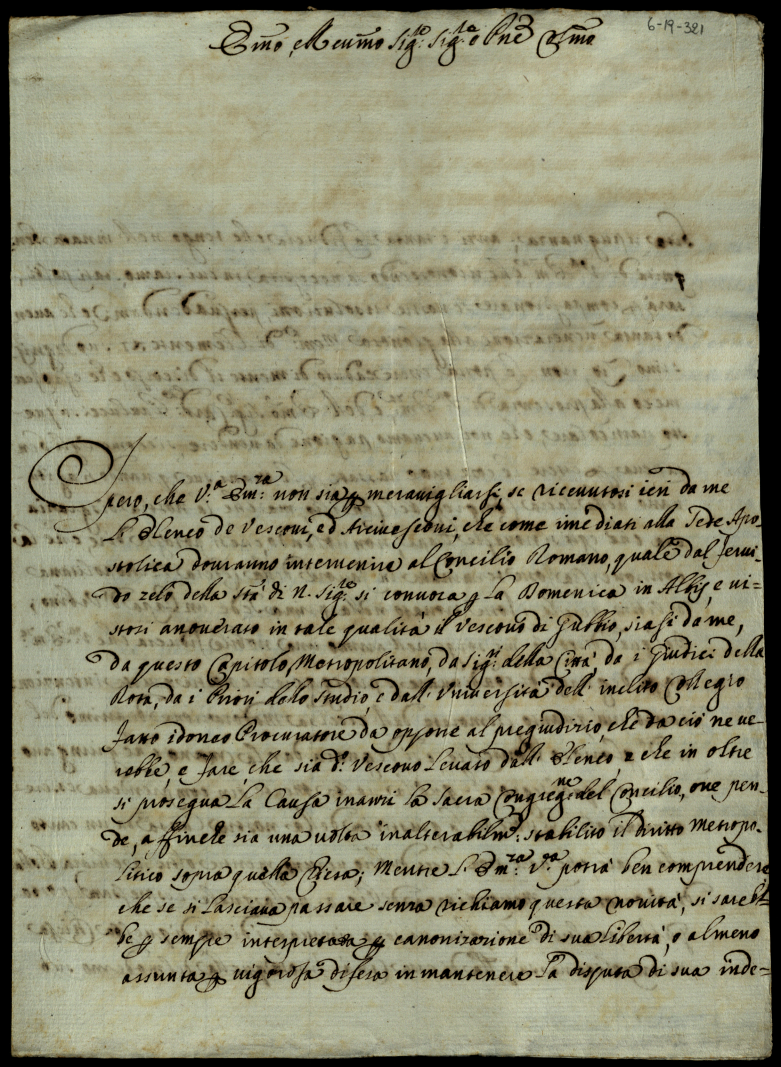 6-19-321
Emo, e Reumo Sig.r Sig.r e Pne Colmo
Spero, che V.ra Em.za non sia p meravigliarsi, se ricevutosi ieri da me
L'Elenco de Vescovi, ed Arcivescovi, che come imediati alla Sede Apo=
stolica douranno intervenire al Concilio Romano, quale dal fervi=
do zelo della Stà di N. Sig.re si convoca p La Domenica in Albis, e vi=
stosi anoverato in tale qualità il Vescovo di Gubbio, siasi da me,
da questo Capitolo Metropolitano, da Sig.ri della Città, da i Giudici della
Rota, da i Priori dello Studio, e dall' Università dell' inclito Collegio
fatto idoneo Procuratore da opporre al pregiudizio, che da ciò ne ve=
rebbe, e fare che sia d.o Vescovo Levato dall' Elenco, e che in oltre
si prosegua La Causa inanzi la Sacra Congreg.ne del Concilio, ove pen=
de, affinche sia una volta inalterabilm.te stabilito il diritto Metropo=
litico sopra quella Chiesa; Mentre L' Em.za V.ra potrà ben comprendere
che se si lasciava passare senza richiamo questa novità, si sareb=
be p sempre interpretata p canonizazione di sua libertà, o almeno
assunta p vigorosa difesa in mantenere La disputa di sua inde=